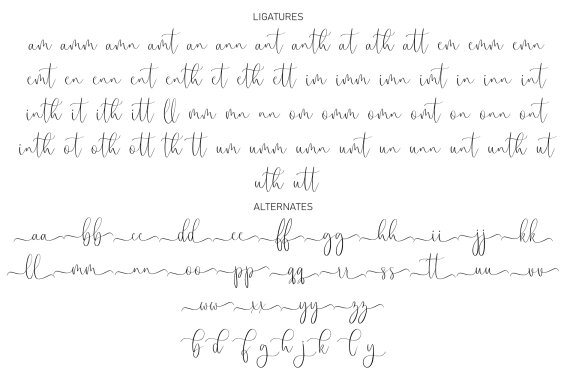 LIGATURES
am amm amn amt an ann ant anth at ath att em emm emn
emt en enn ent enth et eth ett im imm imn imt in inn int
inth it ith itt ll mm mn nn om omm omn omt on onn ont
inth ot oth ott th tt um umm umn umt un unn unt unth ut
uth utt
ALTERNATES
aa bb cc dd ee ff gg hh ii jj kk
ll mm nn oo pp qq rr ss tt uu vv
ww xx yy zz
b d f g h j k l y